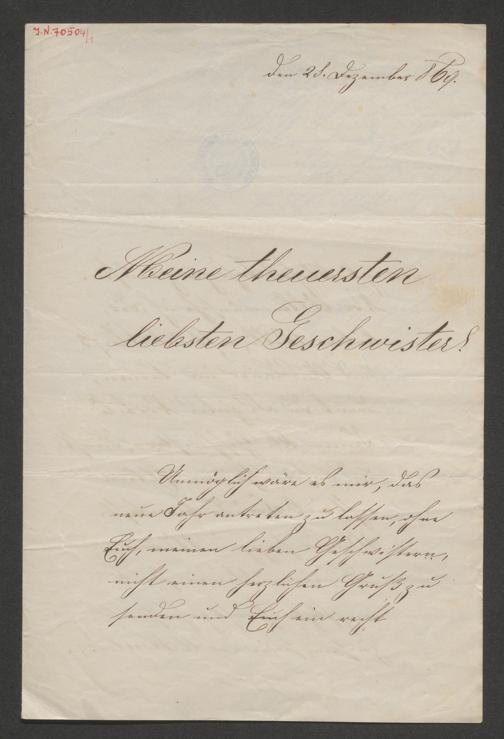 J.N. 70504/1
den 28. Dezember 869.
Meine theuersten
liebsten Geschwister!
Unmöglich wäre es mir, das
neue Jahr antreten zu lassen, ohne
Euch, meinen lieben Geschwistern,
nicht einen herzlichen Gruß zu
senden und Euch ein recht